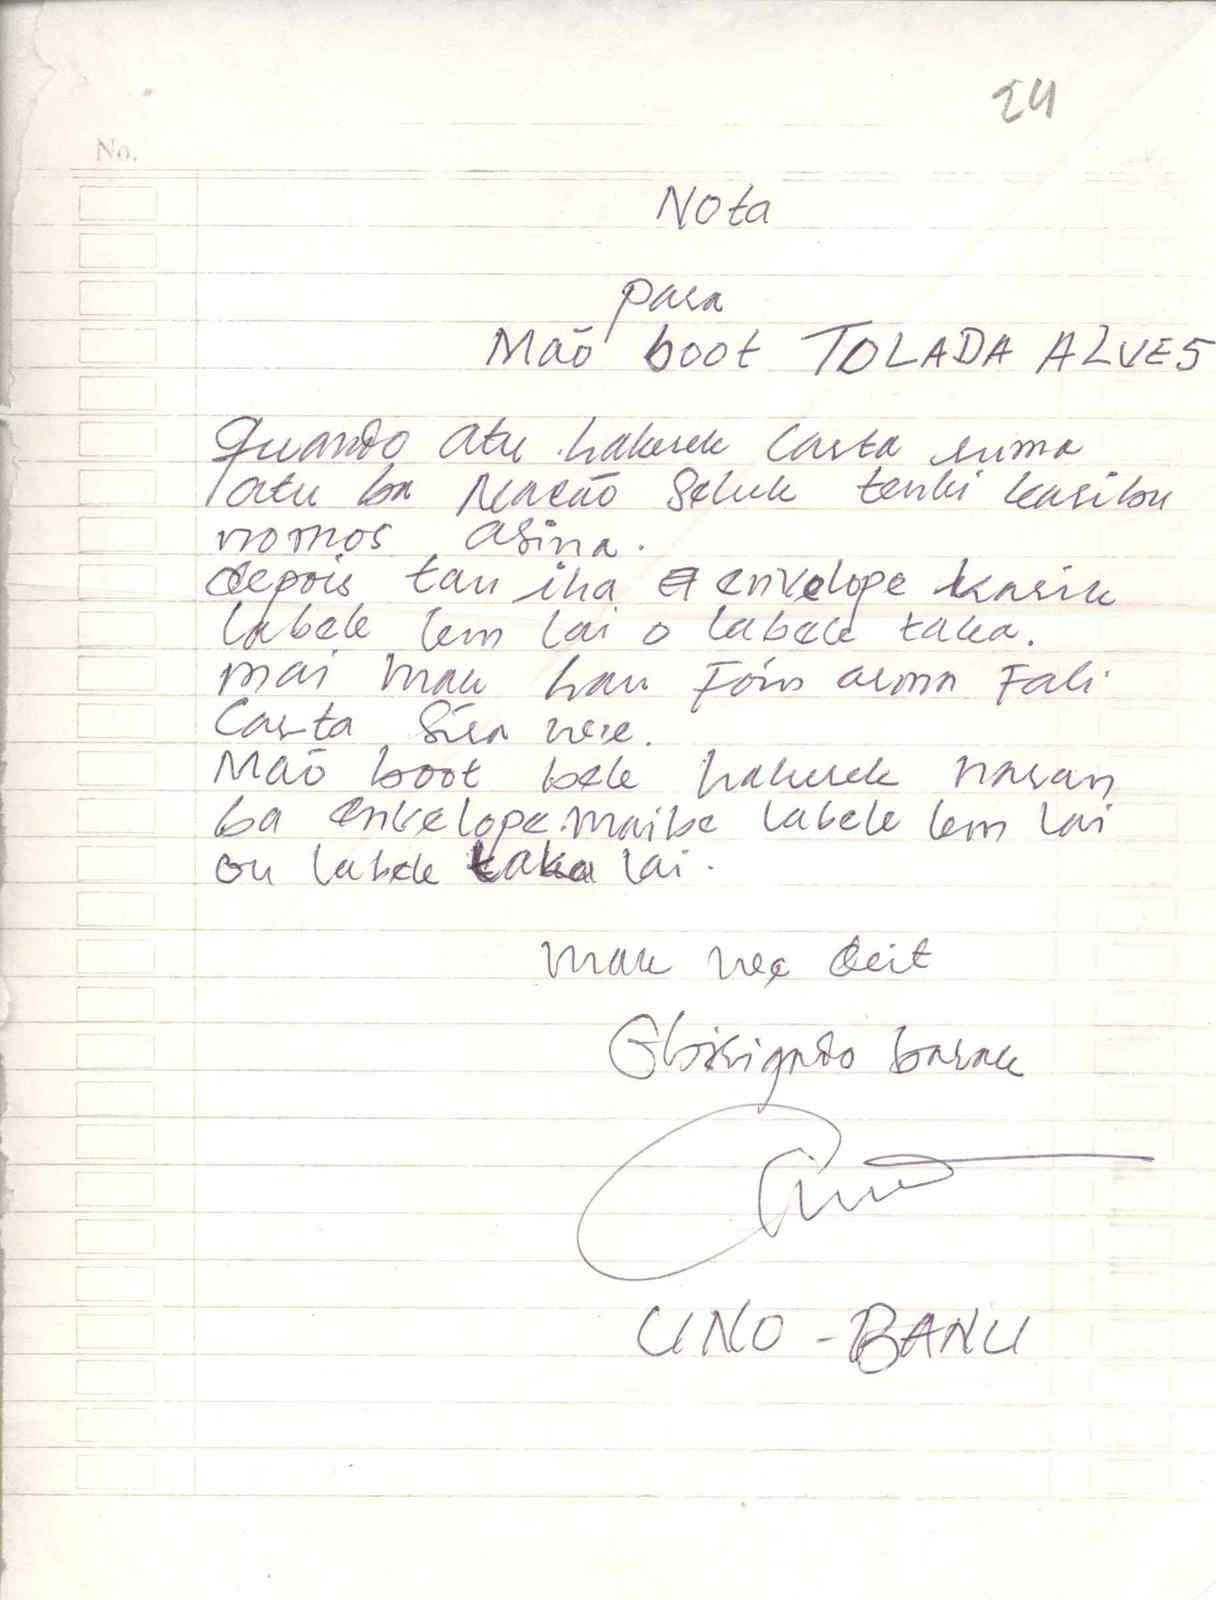 24
No.
Nota
para
Mão boot TOLADA ALVES
Quando atu hakerek Carta ruma
atu ba Nação Seluk tenki karibu
nomos asina.
depois tau iha envelope kasik
labele lem lai o labele taka.
mai mak hau Fóin aruma Fali
Carta Sira nee.
Mão boot bele hakerek naran
ba envelope. maibe labele lem lai
ou labele taka lai.
mak nee deit
Obirigado barak
UNO - BANU